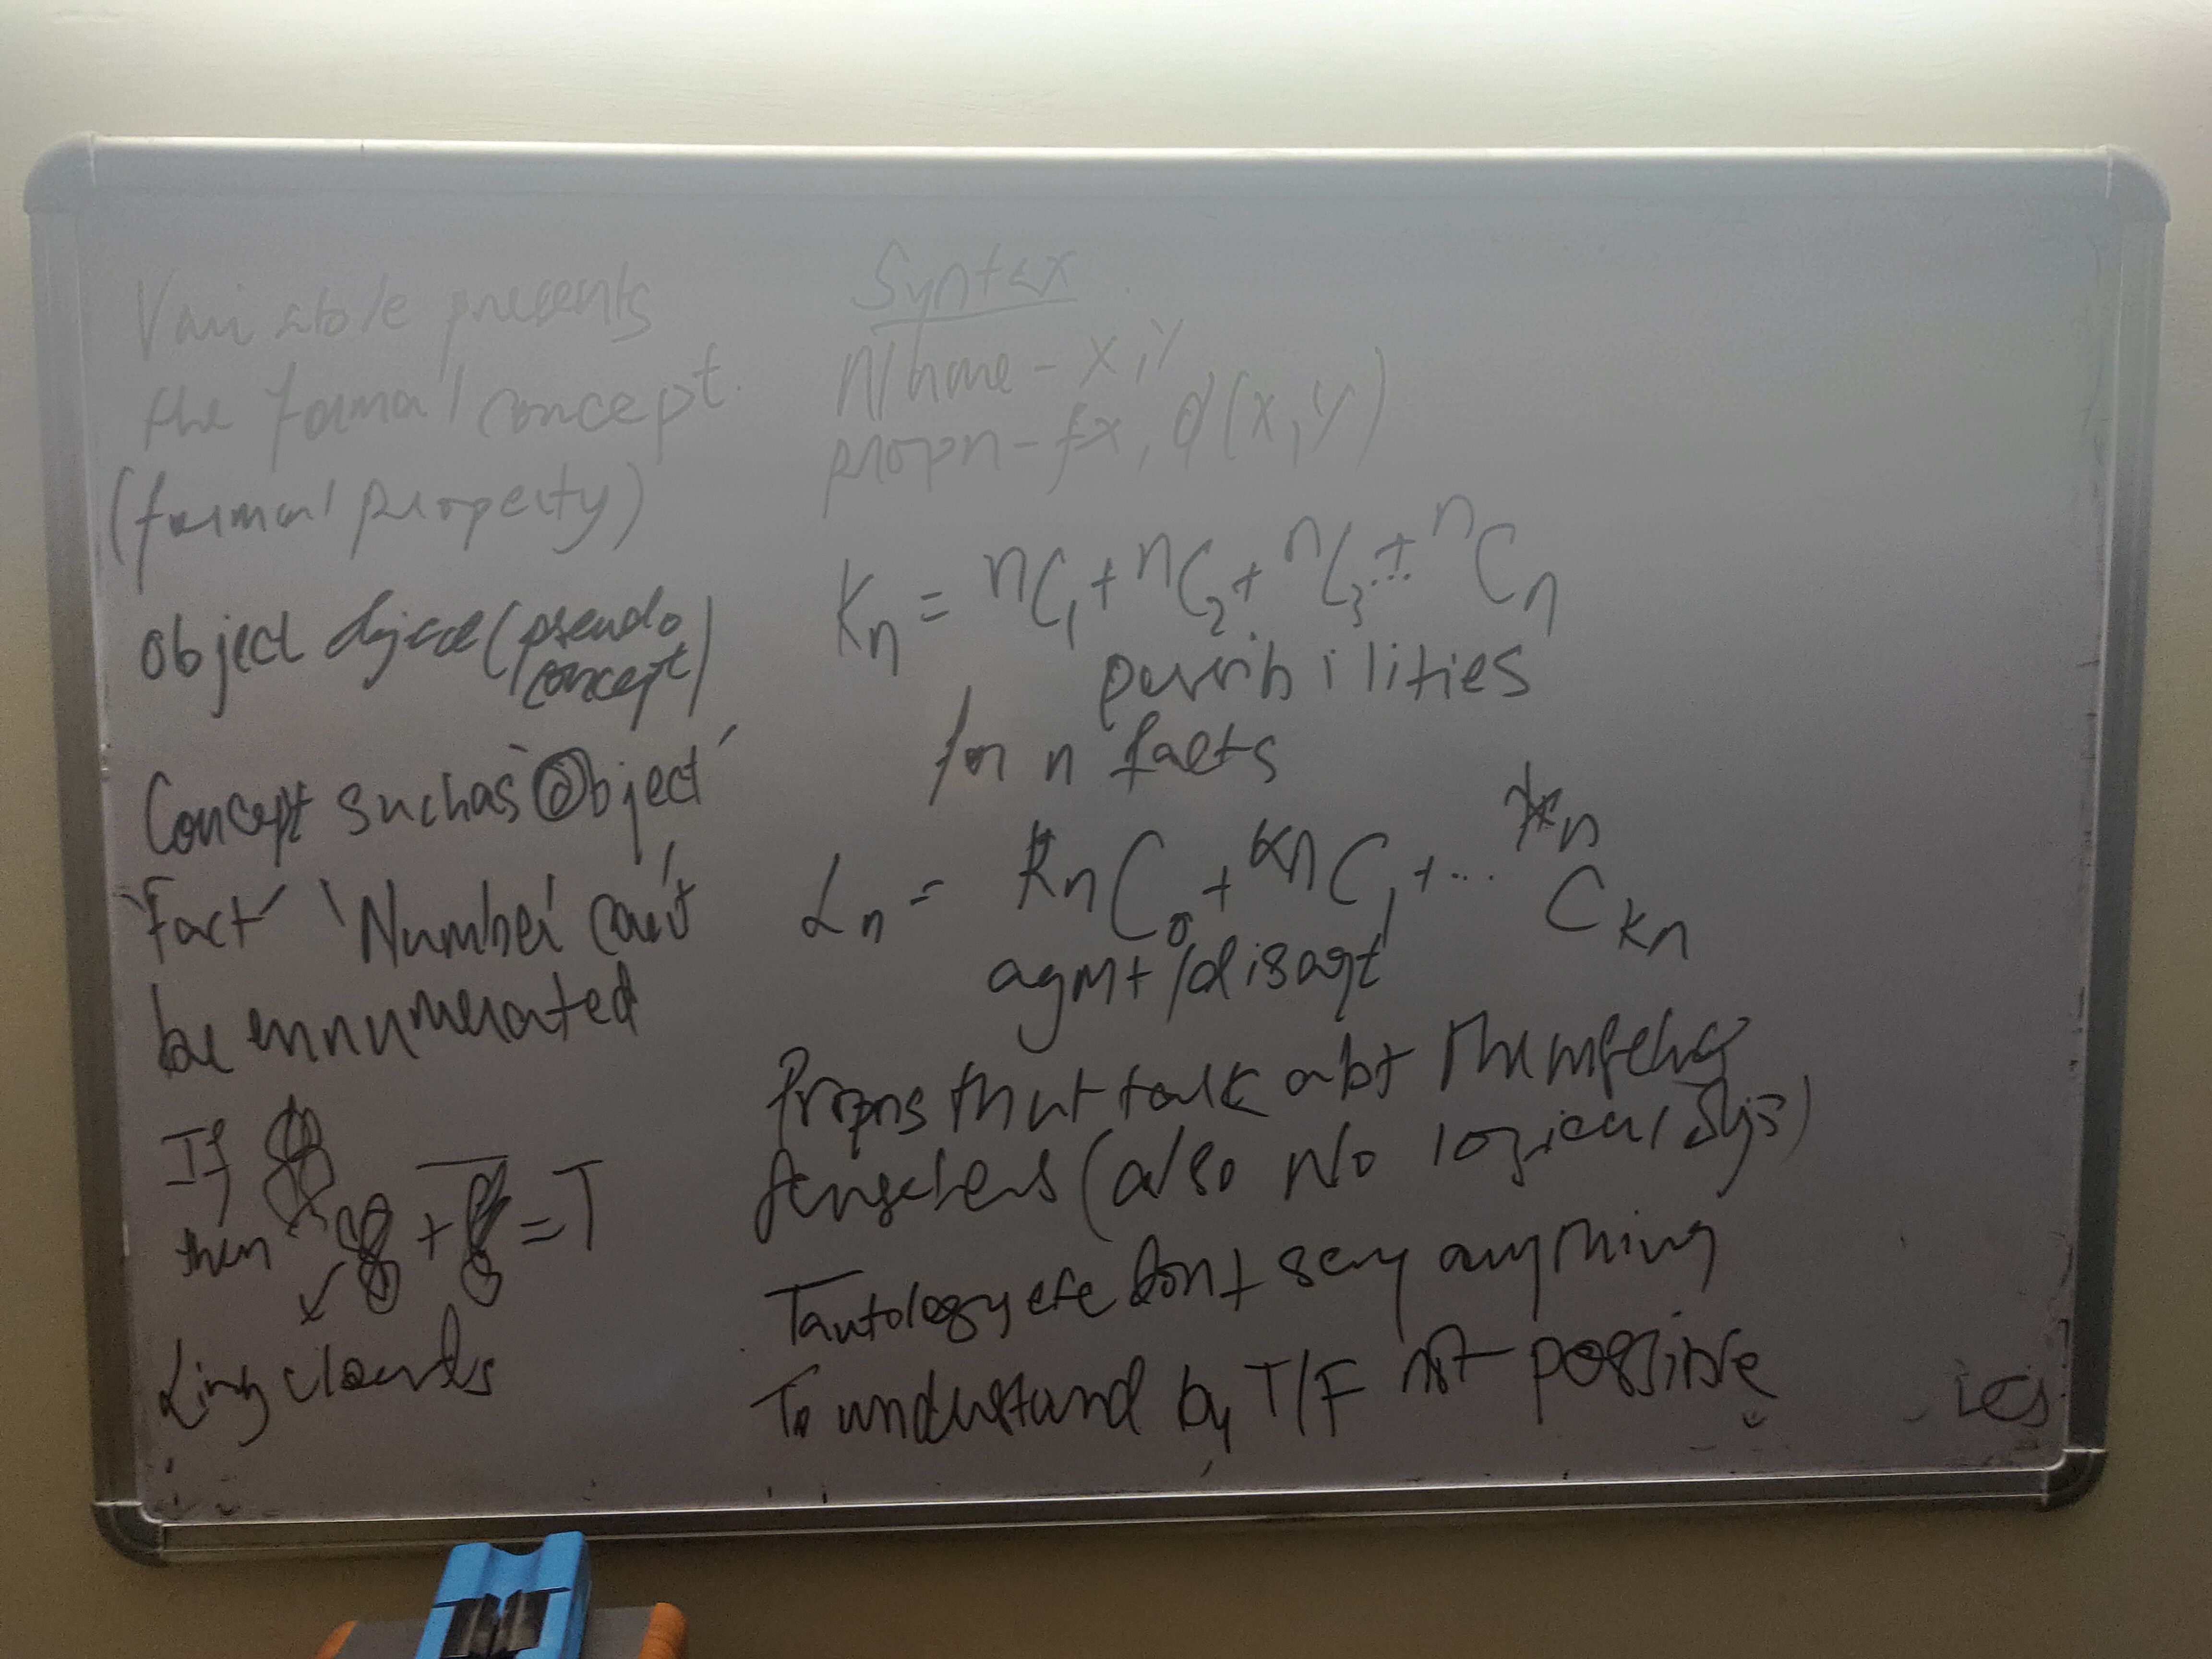 Variable presents
the formal concept.
(formal property)
Object object (pseudo
concept)
Concept such as 'Object'
'Fact' 'Number' can't
be ennumerated
If
then + = T
Ling clouds
Syntax
N/name - x, y
propn - fx, φ(x, y)
Kn = nC1 + nC2 + nC3 ... + nCn
possibilities
for n facts
Ln = KnC0 + KnC1 + ... KnCKn
agmt/disagt
Propns that talk abt themselves
senseless (also No logical Sys)
Tautology etc dont say anything
To understand by T/F not possible